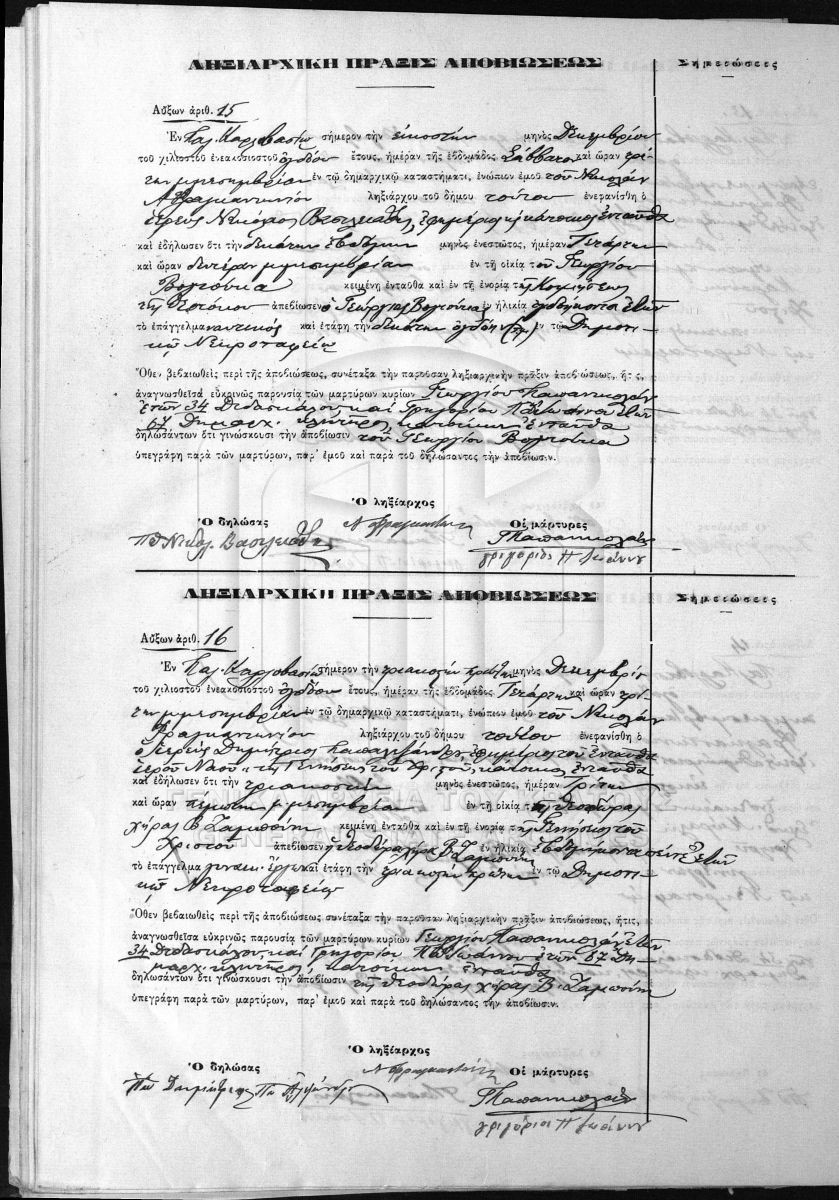 ΛΗΞΙΑΡΧΙΚΗ ΠΡΑΞΙΣ ΑΠΟΒΙΩΣΕΩΣ
Σημειώσεις
Αὔξων ἀριθ. 15
Ἐν Παλ. Καρλοβασίῳ σήμερον τὴν εἰκοστὴν μηνὸς Δεκεμβρίου
τοῦ χιλιοστοῦ ἐνεακοσιοστοῦ ὀγδόου ἔτους, ἡμέραν τῆς ἑβδομάδος Σάββατον καὶ ὥραν τρί-
την μ.μεσημβρίαν ἐν τῷ δημαρχικῷ καταστήματι, ἐνώπιον ἐμοῦ τοῦ Νικολάου
ληξιάρχου τοῦ δήμου τούτου ἐνεφανίσθη ὁ
ἱερεὺς Νικόλαος Βασιλειάδης, ἐφημέριος κ κάτοικος ἐνταῦθα
καὶ ἐδήλωσεν ὅτι τὴν δεκάτην ἑβδόμην μηνὸς ἐνεστῶτος, ἡμέραν Τετάρτην
καὶ ὥραν δευτέραν μ.μεσημβρίαν ἐν τῇ οἰκίᾳ τοῦ Γεωργίου
κειμένῃ ἐνταῦθα καὶ ἐν τῇ ἐνορίᾳ τῆς Κοιμήσεως
τῆς Θεοτόκου ἀπεβίωσεν ὁ Γεώργιος ἐν ἡλικίᾳ ἐτῶν
τὸ ἐπάγγελμα ναυτικὸς καὶ ἐτάφη τὴν δεκάτην ὀγδόην ἐν τῷ Δημοτι-
κῷ Νεκροταφείῳ
Ὅθεν βεβαιωθεὶς περὶ τῆς ἀποβιώσεως, συνέταξα τὴν παροῦσαν ληξιαρχικὴν πρᾶξιν ἀποβιώσεως, ἥτις,
ἀναγνωσθεῖσα εὐκρινῶς παρουσίᾳ τῶν μαρτύρων κυρίων Γεωργίου Παπανικολάου
ἐτῶν 34 Διδασκάλου, καὶ Γρηγορίου Π. Ἰωάννου ἐτῶν
67 Δημαρχ. κλητῆρος, κατοίκων ἐνταῦθα
δηλωσάντων ὅτι γινώσκουσι τὴν ἀποβίωσιν τοῦ Γεωργίου
ὑπεγράφη παρὰ τῶν μαρτύρων, παρ' ἐμοῦ καὶ παρὰ τοῦ δηλώσαντος τὴν ἀποβίωσιν.
Ὁ ληξίαρχος
Ὁ δηλώσας
Οἱ μάρτυρες
Νικολ. Βασιλειάδης
ΓΠαπανικολάου
γριγόριος Π Ιωάννου
ΛΗΞΙΑΡΧΙΚΗ ΠΡΑΞΙΣ ΑΠΟΒΙΩΣΕΩΣ
Σημειώσεις
Αὔξων ἀριθ. 16
Ἐν Παλ. Καρλοβασίῳ σήμερον τὴν τριακοστὴν πρώτην μηνὸς Δεκεμβρίου
τοῦ χιλιοστοῦ ἐνεακοσιοστοῦ ὀγδόου ἔτους, ἡμέραν τῆς ἑβδομάδος Τετάρτην καὶ ὥραν τρί-
την μ.μεσημβρίαν ἐν τῷ δημαρχικῷ καταστήματι, ἐνώπιον ἐμοῦ τοῦ Νικολάου
ληξιάρχου τοῦ δήμου τούτου ἐνεφανίσθη ὁ
ὁ Ἱερεὺς Δημήτριος Παπαλεξάνδρου ἐφημέριος τοῦ ἐνταῦθα
ἱεροῦ Ναοῦ "τῆς Γεννήσεως τοῦ Χριστοῦ", κάτοικος ἐνταῦθα
καὶ ἐδήλωσεν ὅτι τὴν τριακοστὴν μηνὸς ἐνεστῶτος, ἡμέραν Τρίτην
καὶ ὥραν πέμπτην μ.μεσημβρίαν ἐν τῇ οἰκίᾳ τῆς Θεοδώρας
χήρας Β. Ζαμπούνη κειμένῃ ἐνταῦθα καὶ ἐν τῇ ἐνορίᾳ τῆς Γεννήσεως τοῦ
Χριστοῦ ἀπεβίωσεν ἡ Θεοδώρα χήρα Β. Ζαμπούνη ἐν ἡλικίᾳ ἑβδομήκοντα πέντε ἐτῶν
τὸ ἐπάγγελμα καὶ ἐτάφη τὴν τριακοστὴν πρώτην ἐν τῷ Δημοτι-
κῷ Νεκροταφείῳ
Ὅθεν βεβαιωθεὶς περὶ τῆς ἀποβιώσεως συνέταξα τὴν παροῦσαν ληξιαρχικὴν πρᾶξιν ἀποβιώσεως, ἥτις,
ἀναγνωσθεῖσα εὐκρινῶς παρουσίᾳ τῶν μαρτύρων κυρίων Γεωργίου Παπανικολάου ἐτῶν
34 Διδασκάλου, καὶ Γρηγορίου Π. Ἰωάννου ἐτῶν 67 Δη-
μαρχ. κλητῆρος, κατοίκων ἐνταῦθα
δηλωσάντων ὅτι γινώσκουσι τὴν ἀποβίωσιν τῆς Θεοδώρας χήρας Β. Ζαμπούνη
ὑπεγράφη παρὰ τῶν μαρτύρων, παρ' ἐμοῦ καὶ παρὰ τοῦ δηλώσαντος τὴν ἀποβίωσιν.
Ὁ ληξίαρχος
Ὁ δηλώσας
Οἱ μάρτυρες
ΓΠαπανικολάου
γριγόριος Π Ιωάννου